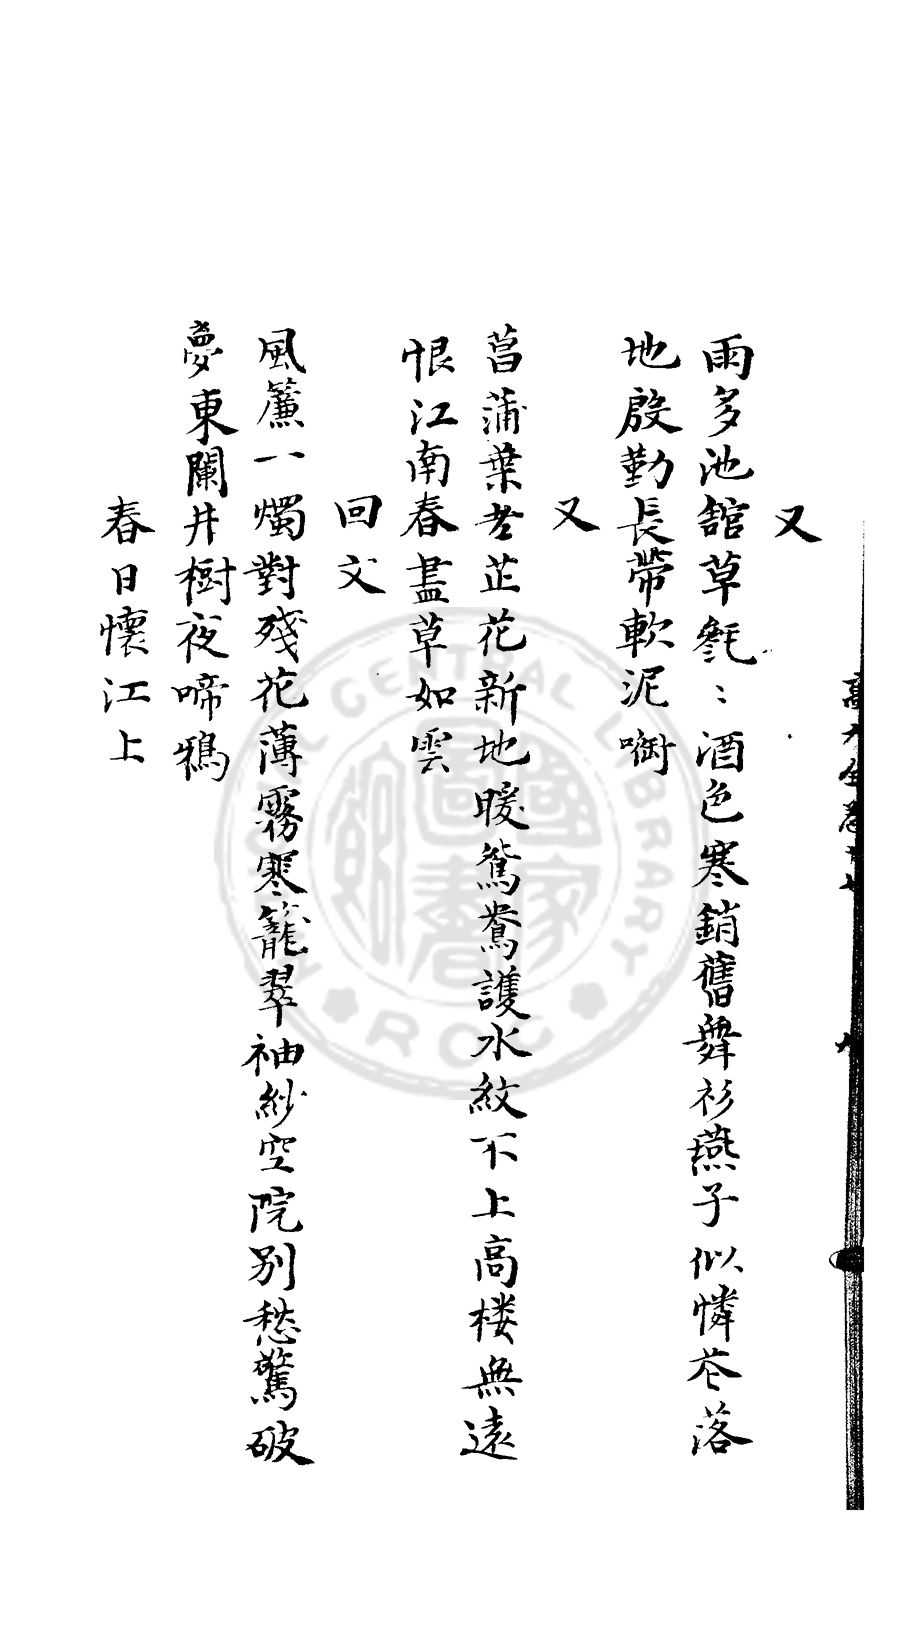 又
雨多池館草毿〻酒色寒銷舊舞衫燕子似憐花落
地殷勤長帶軟泥啣
又
菖蒲葉老芷花新地暖鴛鴦護水紋不上高楼無遠
恨江南春盡草如雲
回文
風簾一燭對殘花薄霧寒籠翠袖紗空院別愁驚破
夢東闌井樹夜啼鴉
春日懷江上
NATIONAL CENTRAL LIBRARY
ROC
國家圖書館